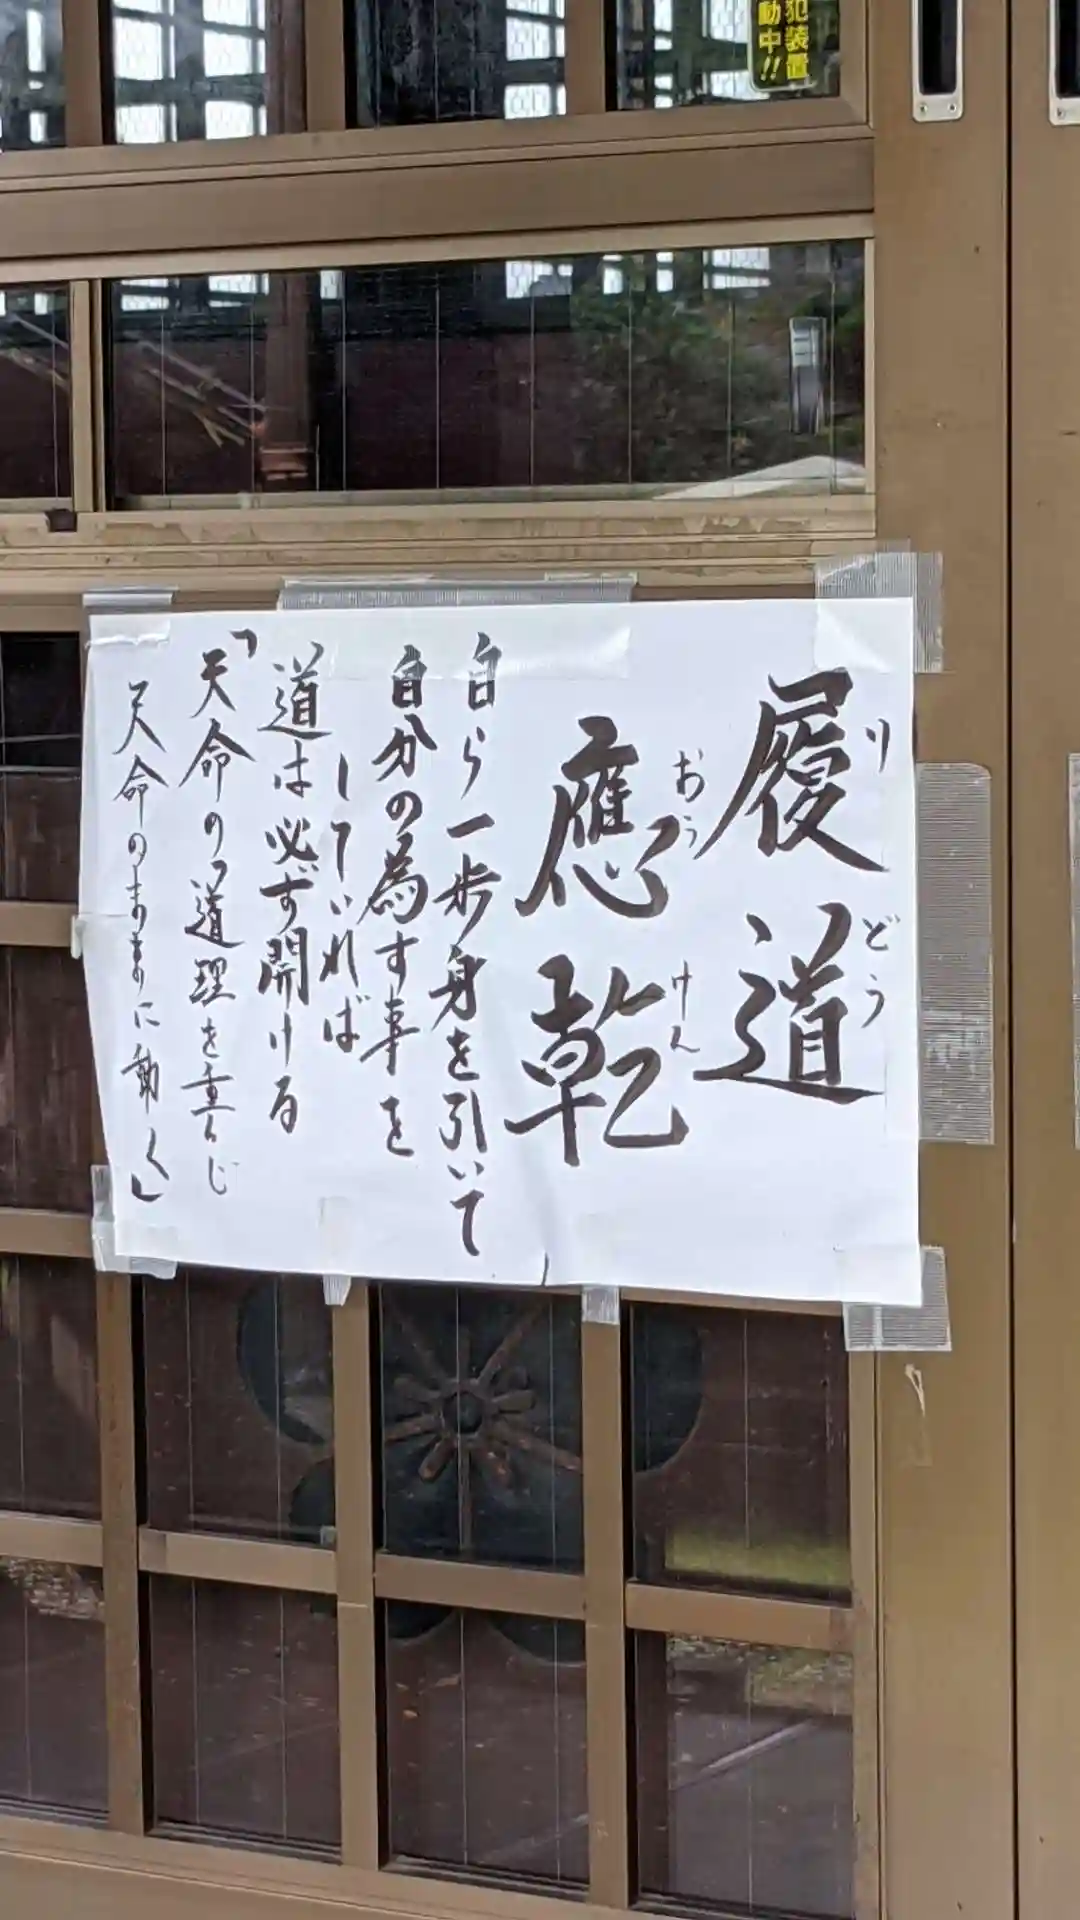 犯装置
動中!!
履道
りどう
應乾
おうけん
自ら一歩身を引いて
自分の為す事を
していれば
道は必ず開ける
「天命の道理を重んじ
天命のままに動く」